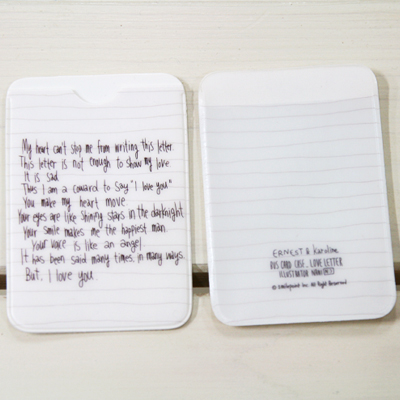 My heart can't stop me from writing this letter.
This letter is not enough to show my love.
It is sad
Thus I am a coward to say "I love you"
You make my heart move.
Your eyes are like shining stars in the darknight.
Your smile makes me the happiest man.
Your voice is like an angel.
It has been said many times, in many ways.
But. I love you.
ERNEST & Karoline
BUS CARD CASE. LOVE LETTER
ILLUSTRATOR
© Smilepoint Inc. All Right Reserved